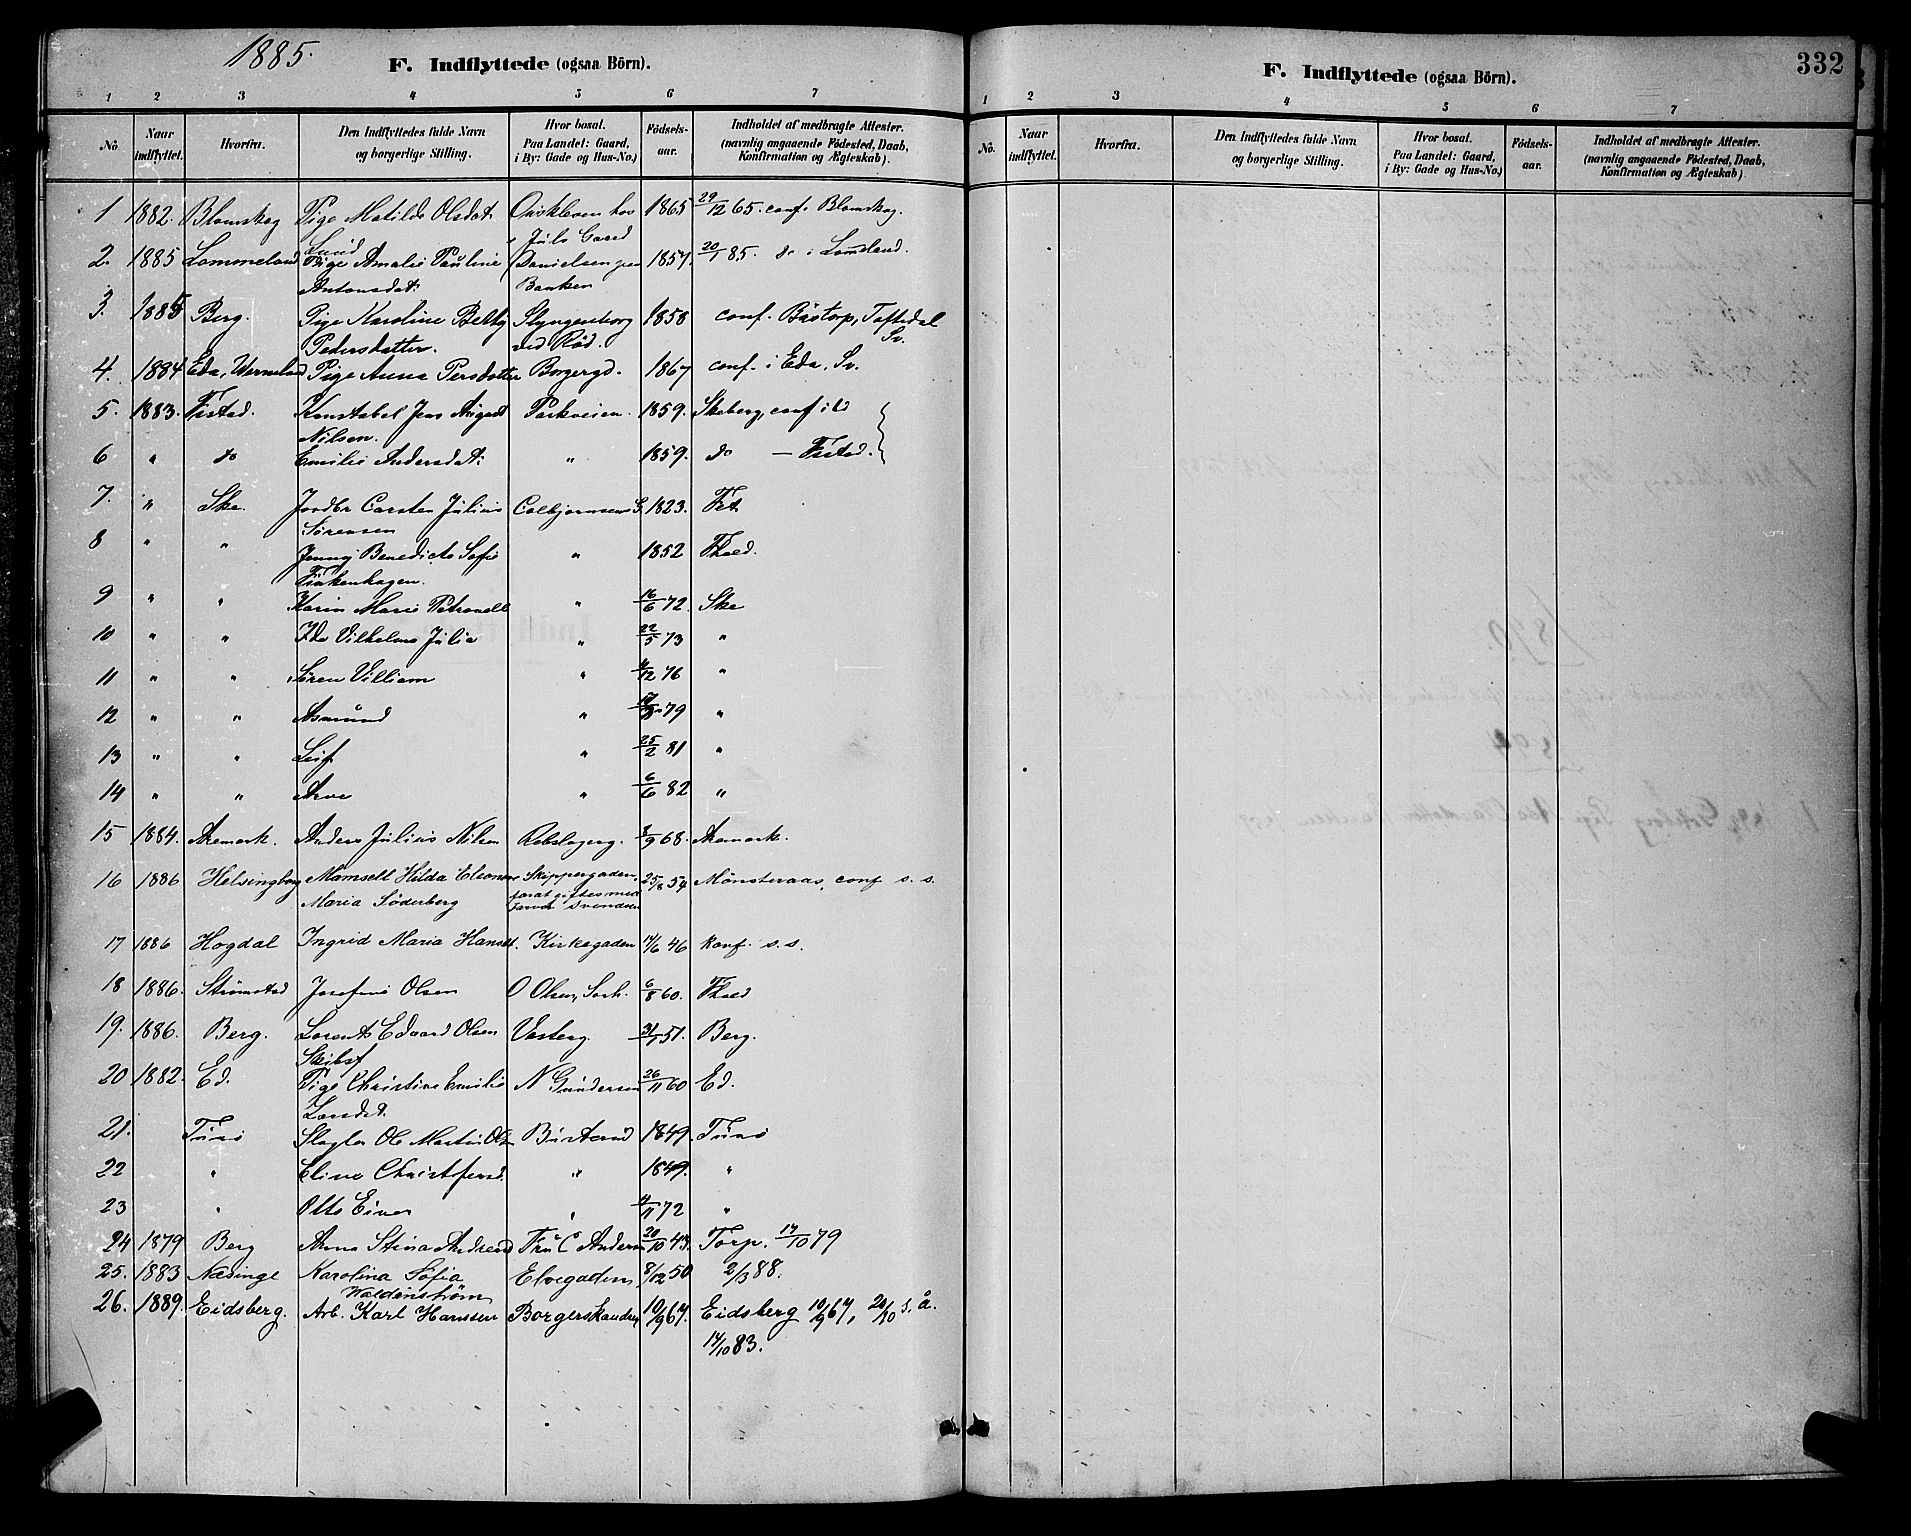 1885.
F. Indflyttede (ogsaa Börn).
1 2 3 4 5 6 7
No. Naar indflyttet. Hvorfra. Den Indflyttedes fulde Navn og borgerlige Stilling. Hvor bosat. Paa Landet: Gaard, i By: Gade og Hus-No.) Födsels-aar. Indholdet af medbragte Attester. (navnlig angaaende Födested, Daab, Konfirmation og Ægteskab).
1 1882. Blomskog Pige Matilde Olsdat hos 1865 29/12 65. conf. Blomskog.
Lund Juls Gaard
2. 1885 Lommeland Pige Amalie Pauline Danielsen paa 1857. 20/1 85. do i Lomeland.
Antonsdat: Banken
3. 1885 Berg. Pige Karoline Betty Slyngenborg 1858 conf. Båstorp, Töftedal
Pedersdatter. ved Röd. Sv.
4. 1884 Eda, Wermeland Pige Anna Persdotter Borgergd. 1867 conf. i Eda, Sv.
5. 1883. Fistad. Konstabel Jens August Parkveien. 1859. Skeberg, conf i
Nilsen.
6 " do Emilie Andersdat: " 1859. do — Fistad.
7. " Ske. Jordbr Carsten Julius Colbjørnsens G. 1823. Fet
Sørensen
8 " " Jenny Benedicte Sofie " 1852 Fhald.
Finkenhagen.
9 " " Karin Marie Petronell " 16/6 72. Ske
10 " " Ida Vilhelma Julia " 22/5 73 "
11 " " Sören Villiam " 4/12 76 "
12 " " Asmund " 79 "
13 " " Leif " 25/2 81 "
14 " " Arve " 6/6 82 "
15 1884. Aremark. Anders Julius Nilsen Rebslagerg. 3/9 68. Aremark.
16 1886 Helsingborg Mamsell Hilda Eleonor Skippergaden, 25/8 54 Mönsteraas, conf s. s.
Maria Söderberg forat giftes med Svendsen
17 1886 Hogdal Ingrid Maria Hansdt. Kirkegaden 14/6 46 konf. s.s.
18 1886. Strømstad Josefine Olsen O Olsen, Sorh. 6/8 60. Fhald
19. 1886. Berg. Lorents Edvard Olsen Vesterg. 31/1 51. Berg.
Skibsf
20 1882. Ed. Pige Christine Emilie N Gundersen 26/11 60 Ed.
Larsdt.
21. Tunø Slagter Ole Martin Olsn Busterud 1849. Tunø
22 " Eline Christfersd. " 1849. "
23 " Otto Einar " 4/11 72 "
24 1879 Berg Anna Stina Andreasd Fru C Andersen 20/10 43. Torp. 14/10 79
25. 1883 Næsinge Karolina Sofia Elvegaden 8/12 50 2/3 88.
Waldenström
26. 1889. Eidsberg. Arb. Karl Hanssen Borgerskanden 10/9 67. Eidsberg 10/9 67, 20/10 s. å.
14/10 83.
F. Indflyttede (ogsaa Börn). 332
1 2 3 4 5 6 7
No. Naar indflyttet. Hvorfra. Den Indflyttedes fulde Navn og borgerlige Stilling. Hvor bosat. Paa Landet: Gaard, i By: Gade og Hus-No.) Födsels-aar. Indholdet af medbragte Attester. (navnlig angaaende Födested, Daab, Konfirmation og Ægteskab).